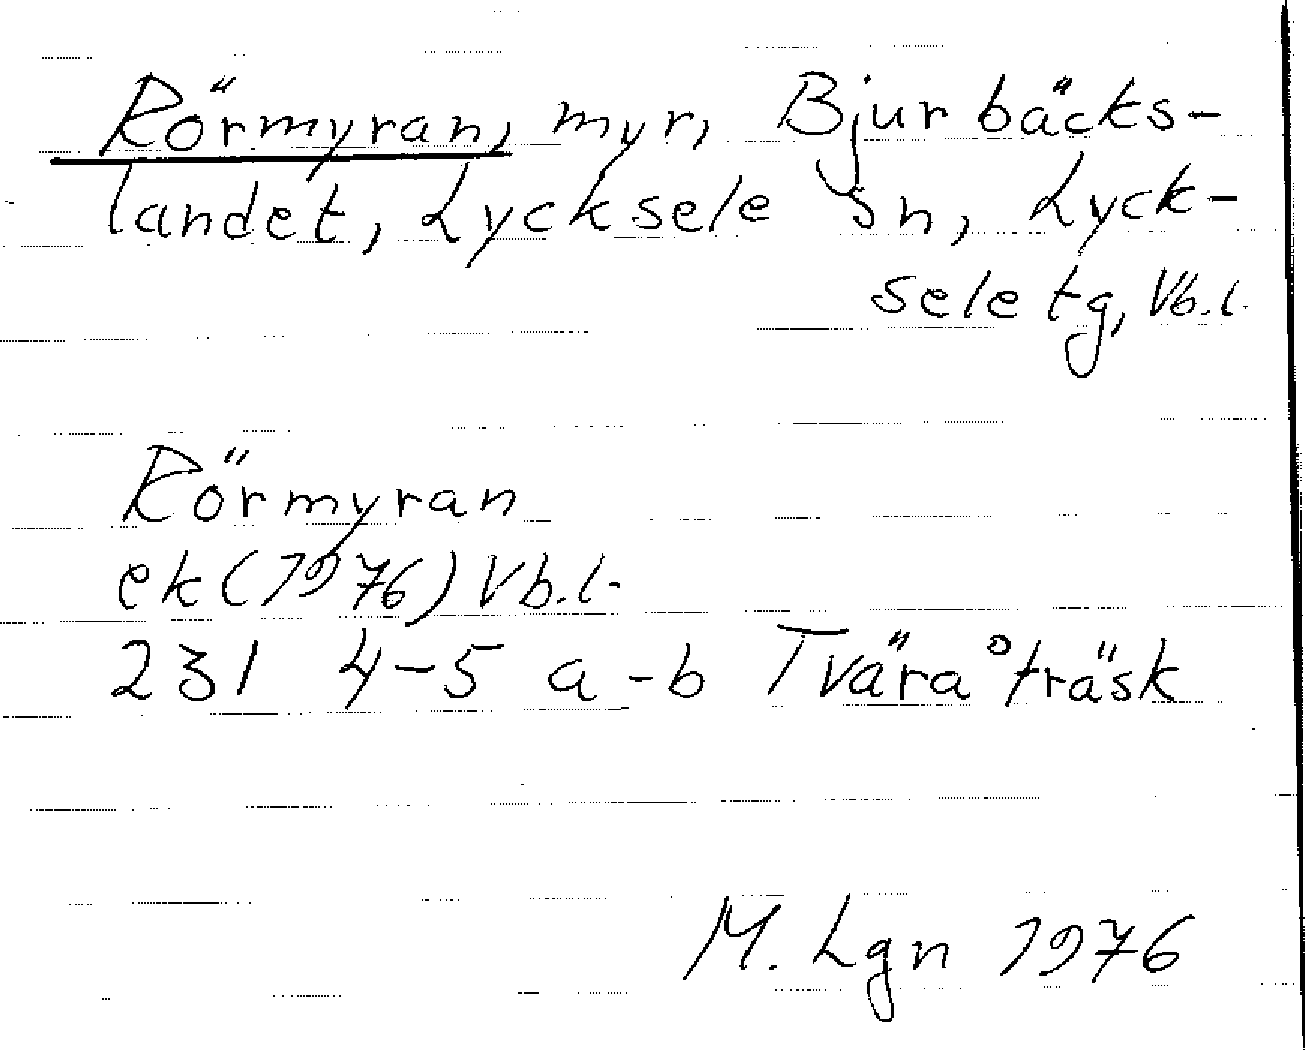 Rörmyran, myr, Bjurbäcks-
landet, Lycksele sn, Lyck-
sele tg, Vb.l.
Rörmyran
ek(1976) Vb.l.
231 4-5 a-b Tväråträsk
M. Lgn 1976